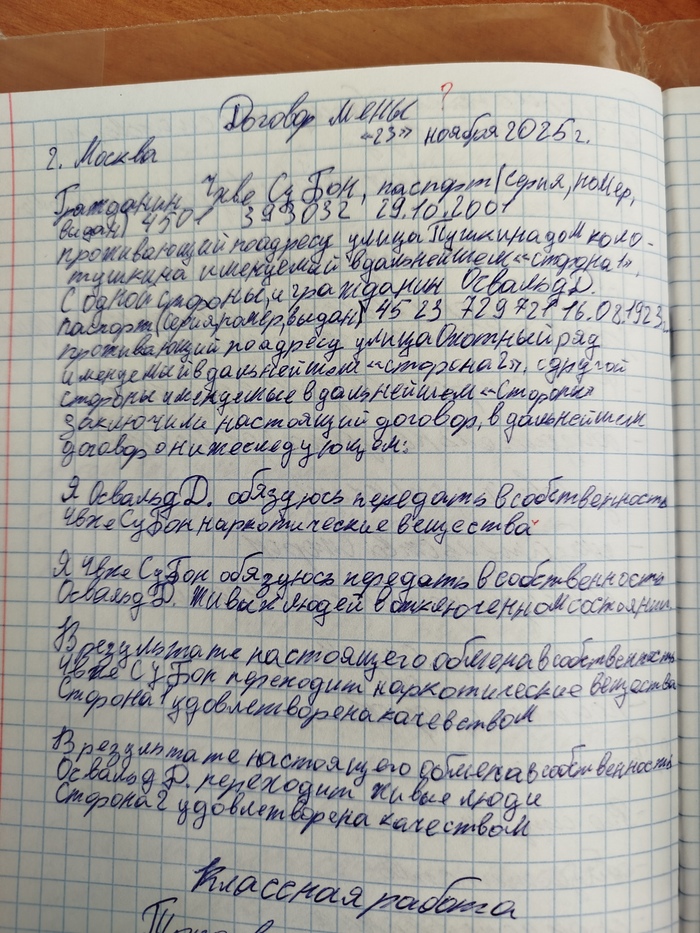 ?
Договор мены
«23» ноября 2025 г.
г. Москва
Гражданин Чже Су Бон, паспорт (серия, номер,
выдан) 4501 393032 29.10.2001
проживающий по адресу улица Пушкина дом коло-
тушкина именуемый в дальнейшем «Сторона 1»,
с одной стороны, и гражданин Освальд Д.
паспорт (серия, номер, выдан) 45 23 729721 16.08.1923г.
проживающий по адресу улица Охотный ряд
именуемый в дальнейшем «сторона 2», с другой
стороны именуемые в дальнейшем «Стороны»
заключили настоящий договор, в дальнейшем
договор о нижеследующем:
Я Освальд Д. обязуюсь передать в собственность
Чже Су Бон наркотические вещества
Я Чже Су Бон обязуюсь передать в собственность
Освальд Д. живых людей в отключенном состоянии
В результате настоящего обмена в собственность
Чже Су Бон переходит наркотические вещества
Сторона 1 удовлетворена качевством
В результате настоящего обмена в собственность
Освальд Д. переходит живые люди
Сторона 2 удовлетворена качеством
Классная работа